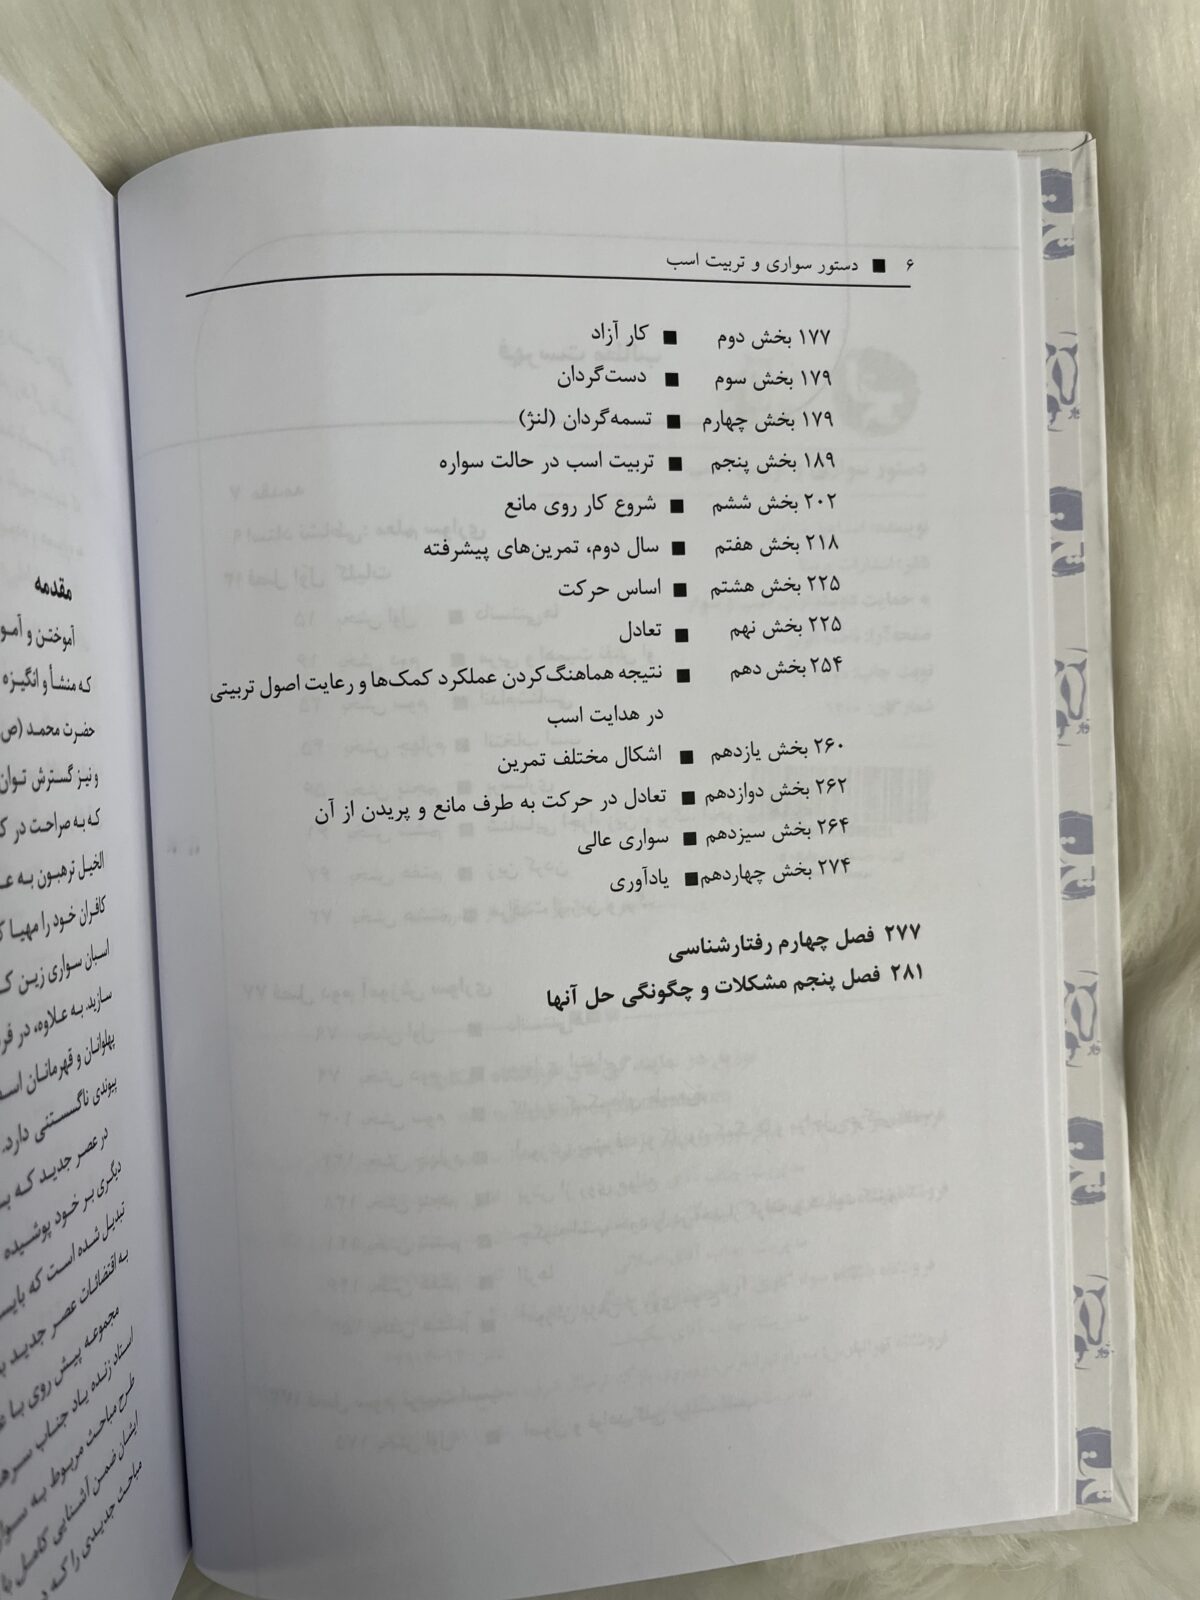 ۶ ■ دستور سواری و تربیت اسب
۱۷۷ بخش دوم ■ کار آزاد
۱۷۹ بخش سوم ■ دست‌گردان
۱۷۹ بخش چهارم ■ تسمه‌گردان (لنژ)
۱۸۹ بخش پنجم ■ تربیت اسب در حالت سواره
۲۰۲ بخش ششم ■ شروع کار روی مانع
۲۱۸ بخش هفتم ■ سال دوم، تمرین‌های پیشرفته
۲۲۵ بخش هشتم ■ اساس حرکت
۲۲۵ بخش نهم ■ تعادل
۲۵۴ بخش دهم ■ نتیجه هماهنگ‌کردن عملکرد کمک‌ها و رعایت اصول تربیتی
در هدایت اسب
۲۶۰ بخش یازدهم ■ اشکال مختلف تمرین
۲۶۲ بخش دوازدهم ■ تعادل در حرکت به طرف مانع و پریدن از آن
۲۶۴ بخش سیزدهم ■ سواری عالی
۲۷۴ بخش چهاردهم ■ یادآوری
۲۷۷ فصل چهارم رفتارشناسی
۲۸۱ فصل پنجم مشکلات و چگونگی حل آنها
مقدمه
آموختن و
که منشأ و انگیزه
حضرت محمد (ص
و نیز گسترش توان
که به صراحت در
الخیل ترهبون به
کافران خود را مهیا
اسبان سواری زین
سازید. به علاوه، در
پهلوانان و قهرمانان
پیوندی ناگسستنی دارد.
در عصر جدید که
دیگری بر خود پوشیده
تبدیل شده است که
به اقتضائات عصر جدید
مجموعه پیش روی با
استاد زنده یاد جناب
طرح مباحث مربوط به
ایشان ضمن آشنایی کامل با
مباحث جدیدی را که